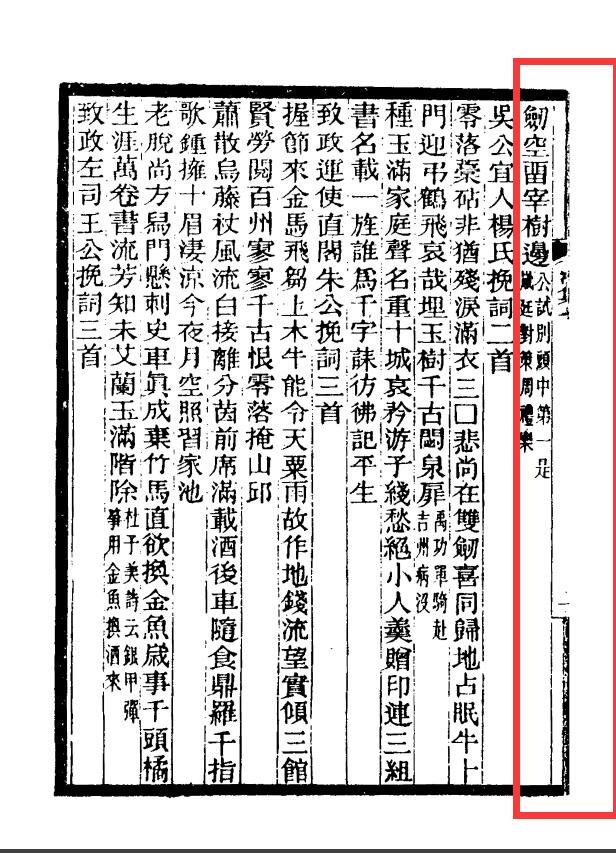 劒空畱宰樹邊公試別頭中第一是
歲廷對策周禮樂
吳公宜人楊氏挽詞二首
零落藁砧非猶殘淚滿衣三口悲尚在雙劒喜同歸地占眠牛上
門迎弔鶴飛哀哉埋玉樹千古閟泉扉禹功軍騎赴
吉州病没
種玉滿家庭聲名重十城哀矜游子綫愁絕小人羹贈印連三組
書名載一旌誰爲千字誄彷彿記平生
致政運使直閣朱公挽詞三首
握節來金馬飛芻上木牛能令天粟雨故作地錢流望實傾三館
賢勞閱百州寥寥千古恨零落掩山邱
蕭散烏藤杖風流白接離分茵前席滿載酒後車隨食鼎羅千指
歌鍾擁十眉凄涼今夜月空照習家池
老脫尚方舄門懸刺史車眞成棄竹馬直欲換金魚歲事千頭橘
生涯萬卷書流芳知未艾蘭玉滿階除杜子美詩云銀甲彈
箏用金魚換酒來
致政左司王公挽詞三首